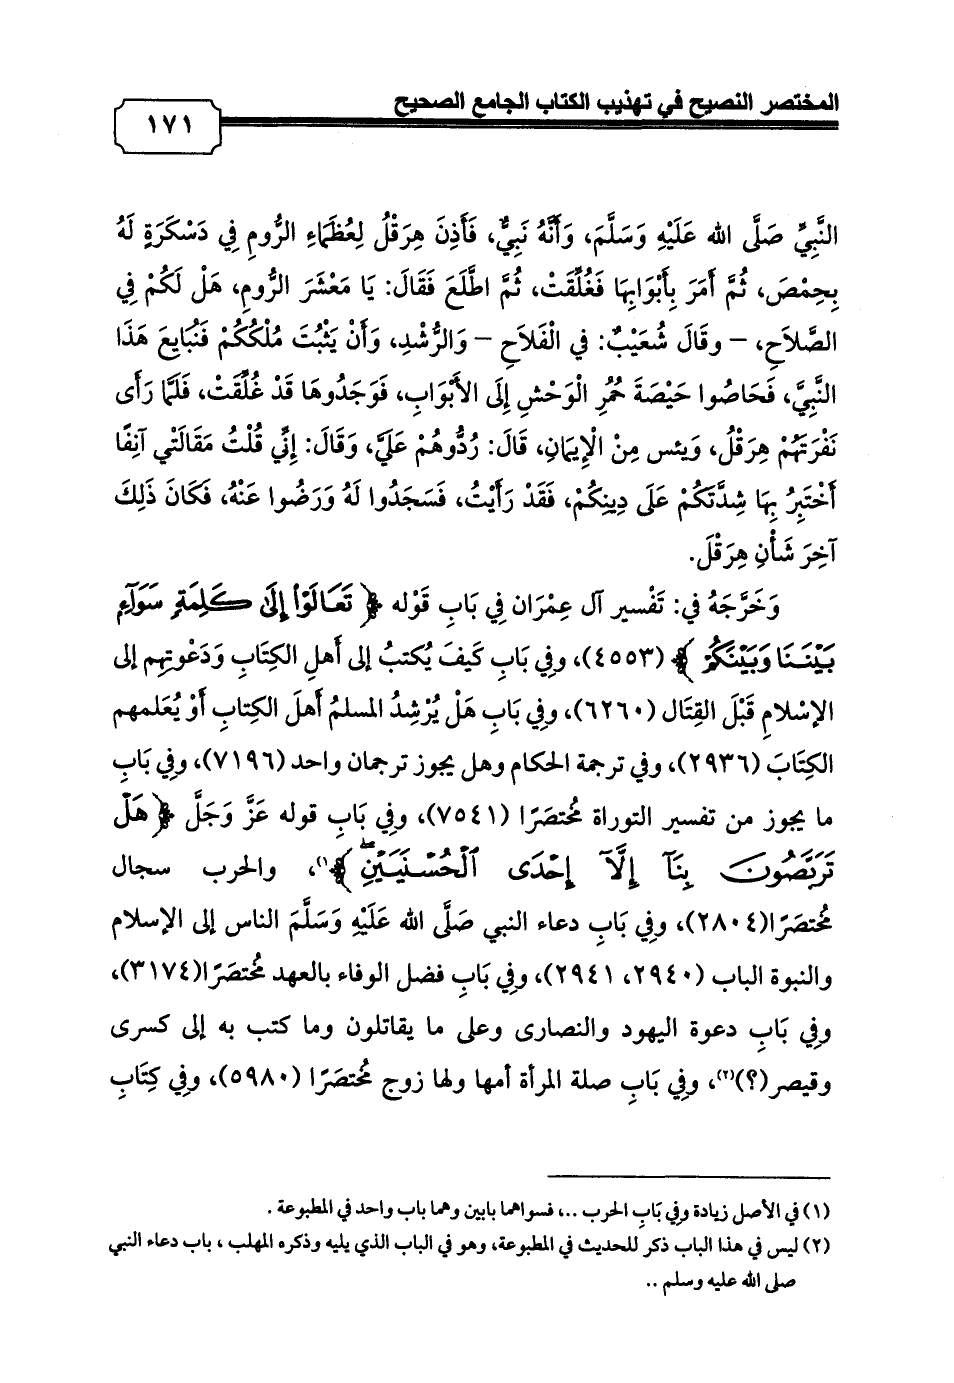 المختصر النصيح في تهذيب الكتاب الجامع الصحيح
١٧١
النَّبِيِّ صَلَّى الله عَلَيْهِ وَسَلَّمَ، وَأَنَّهُ نَبِيٌّ، فَأَذِنَ هِرَقْلُ لِعُظَمَاءِ الرُّومِ فِي دَسْكَرَةٍ لَهُ
بِحِمْصَ، ثُمَّ أَمَرَ بِأَبْوَابِهَا فَغُلِّقَتْ، ثُمَّ اطَّلَعَ فَقَالَ: يَا مَعْشَرَ الرُّومِ، هَلْ لَكُمْ فِي
الصَّلاَحِ، – وقَالَ شُعَيْبٌ: في الْفَلاَحِ – وَالرُّشْدِ، وَأَنْ يَثْبُتَ مُلْكُكُمْ فَنُبَايِعَ هَذَا
النَّبِيَّ، فَحَاصُوا حَيْصَةَ حُمُرِ الْوَحْشِ إِلَى الأَبْوَابِ، فَوَجَدُوهَا قَدْ غُلِّقَتْ، فَلَمَّا رَأَى
نَفْرَتَهُمْ هِرَقْلُ، وَيئس مِنْ الْإِيمَانِ، قَالَ: رُدُّوهُمْ عَلَيَّ، وَقَالَ: إِنِّي قُلْتُ مَقَالَتْي آنِفًا
أَخْتَبِرُ بِهَا شِدَّتَكُمْ عَلَى دِينِكُمْ، فَقَدْ رَأَيْتُ، فَسَجَدُوا لَهُ وَرَضُوا عَنْهُ، فَكَانَ ذَلِكَ
آخِرَ شَأْنِ هِرَقْلَ.
وَخَرَّجَهُ في: تَفْسير آل عِمْرَان فِي بَابِ قَوْله ﴿ تَعَالَوْا إِلَىٰ كَلِمَةٍ سَوَآءٍ
بَيْنَنَا وَبَيْنَكُمْ ﴾ (٤٥٥٣)، وفِي بَابِ كَيفَ يُكتبُ إلى أهلِ الكِتَابِ وَدَعْوتِهم إلى
الإسْلامِ قَبْلَ القِتَال (٦٢٦٠)، وفِي بَابِ هَلْ يُرْشِدُ المسلمُ أهلَ الكِتابِ أوْ يُعَلمهم
الكِتَابَ (٢٩٣٦)، وفي ترجمة الحكام وهل يجوز ترجمان واحد (٧١٩٦)، وفِي بَابِ
ما يجوز من تفسير التوراة مُختصَرًا (٧٥٤١)، وفِي بَابِ قوله عَزَّ وَجَلَّ ﴿ هَلْ
تَرَبَّصُونَ بِنَآ إِلَّآ إِحْدَى ٱلْحُسْنَيَيْنِۖ ﴾(١)، والحرب سجال
مُختصَرًا(٢٨٠٤)، وفِي بَابِ دعاء النبي صَلَّى الله عَلَيْهِ وَسَلَّمَ الناس إلى الإسلام
والنبوة الباب (٢٩٤٠، ٢٩٤١)، وفِي بَابِ فضل الوفاء بالعهد مُختصَرًا(٣١٧٤)،
وفِي بَابِ دعوة اليهود والنصارى وعلى ما يقاتلون وما كتب به إلى كسرى
وقيصر(؟)(٢)، وفِي بَابِ صلة المرأة أمها ولها زوج مُختصَرًا (٥٩٨٠)، وفِي كِتَابِ
(١) في الأصل زيادة وفِي بَابِ الحرب ..، فسواهما بابين وهما باب واحد في المطبوعة .
(٢) ليس في هذا الباب ذكر للحديث في المطبوعة، وهو في الباب الذي يليه وذكره المهلب ، باب دعاء النبي
صلى الله عليه وسلم ..